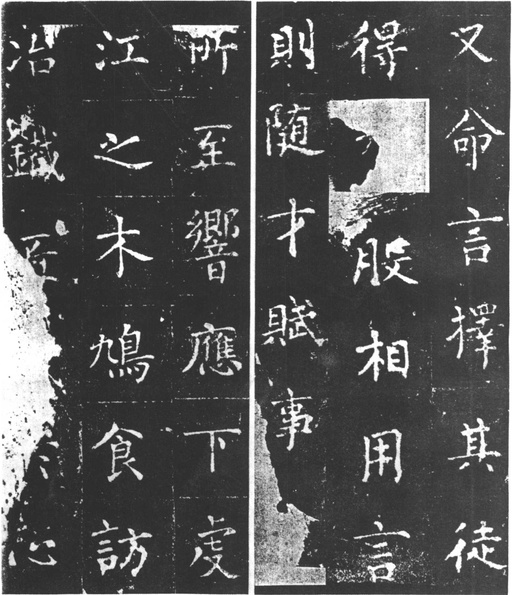 又命言擇其徒
得股相用言
則隨才賦事
所至響應下虔
江之木鳩食訪
冶鐵